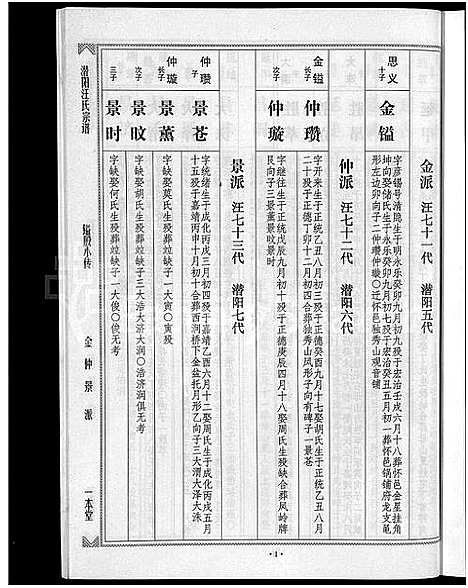 金派 汪七十一代 潜阳五代
思义
十子
金镒
字彦锡号清隐生于明永乐癸卯九月初九殁于宏治壬戌六月十八葬怀邑金星挂角
坤向娶储氏生于永乐癸卯九月初七殁于宏治癸丑五月初一葬怀邑锅铺府龙支亀
形左边卯向子二仲瓒仲璇〇迁怀邑独秀山观音铺
仲派 汪七十二代 潜阳六代
金镒
长子
仲瓒
字开来生于正统乙丑八月初三殁于正德癸酉九月十七娶胡氏生于正统乙丑八月
二十殁于正德丁卯十二月初四合葬独秀山凤形子向有碑子一景苍
次子
仲璇
字继往生于正统戊辰九月初十殁于正德庚辰四月十八娶周氏生殁缺合葬凤岭牌
艮向子三景薰景旼景时
景派 汪七十三代 潜阳七代
仲瓒
之子
景苍
字统绪生于成化丙戌三月初四殁于嘉靖乙酉六月十二娶周氏生于成化丙戌五月
十五殁于嘉靖丙申十月初十合葬怀邑西润桥下金盆托月形乙向子三大渭大泽大洙
仲璇
长子
景薰
字缺娶莫氏生殁葬竝缺子一大寅〇寅殁
次子
景旼
字缺娶胡氏生殁葬竝缺子三大浩大济大润〇浩济润俱无考
三子
景时
字缺娶何氏生殁葬竝缺子一大俊〇俊无考
潜阳汪氏宗谱
金仲景派
一本堂
1